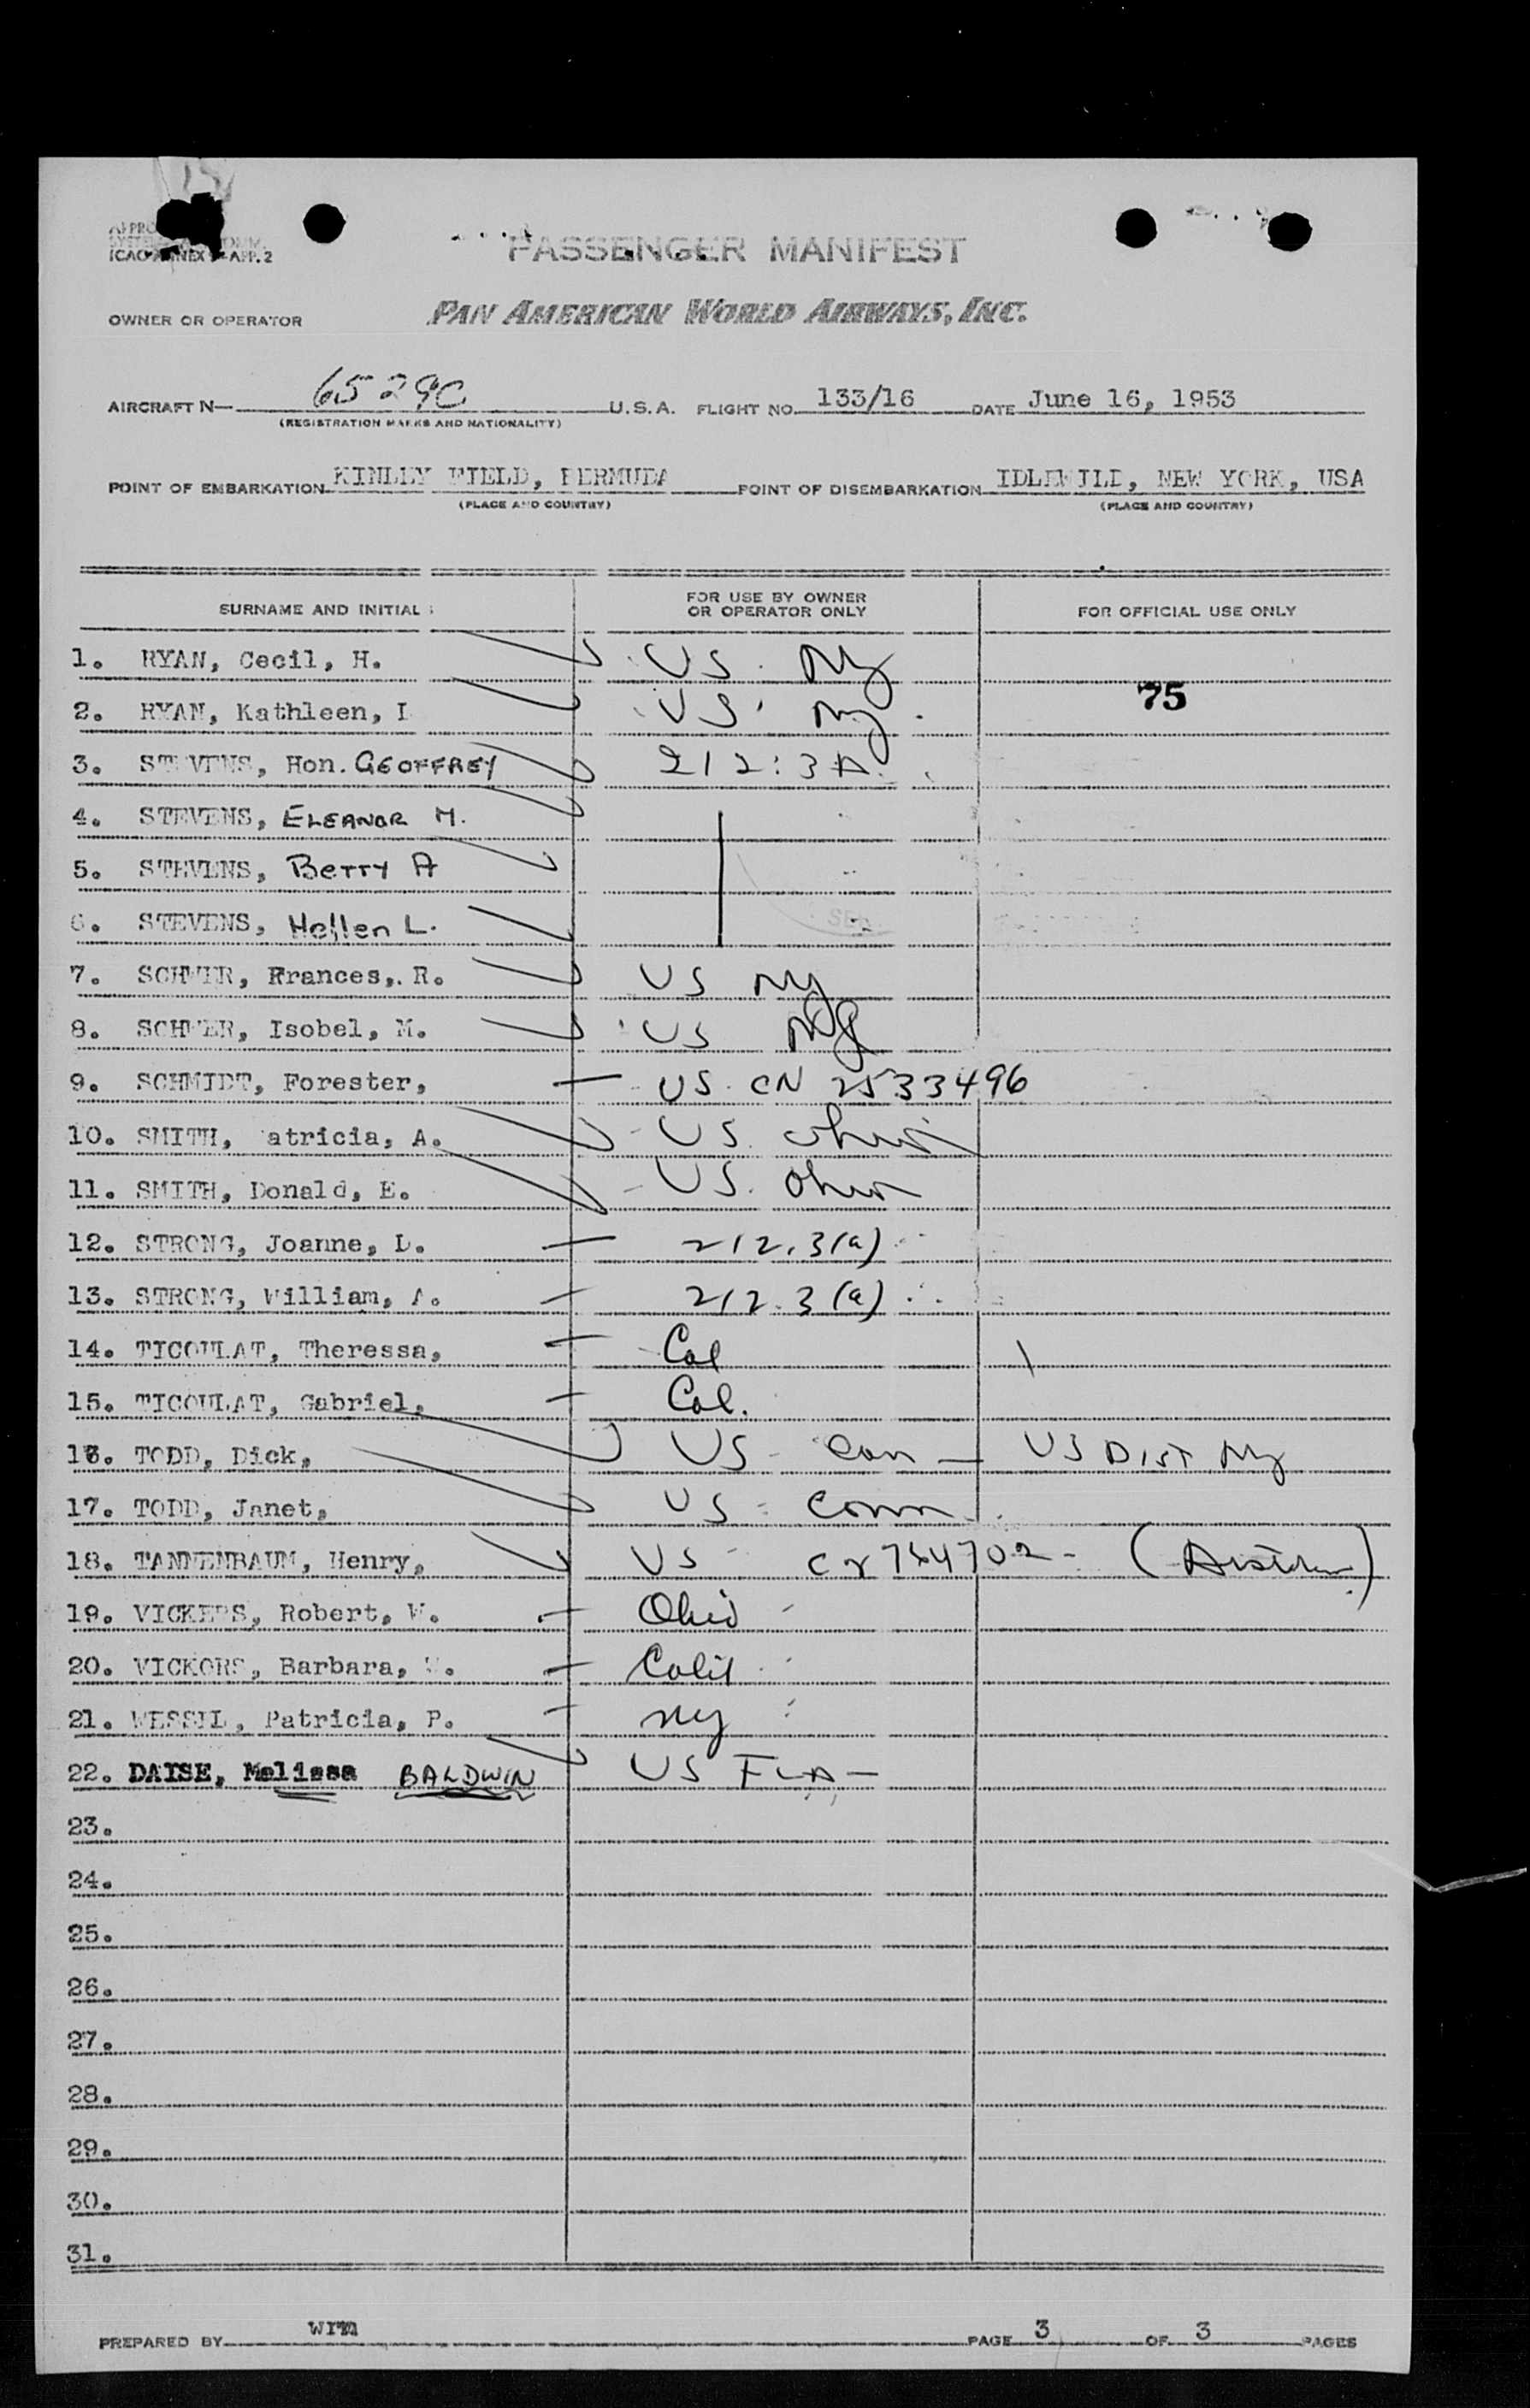 ICAO ANNEX 9-APP. 2
PASSENGER MANIFEST
OWNER OR OPERATOR PAN AMERICAN WORLD AIRWAYS, INC.
AIRCRAFT N— 65290 U.S.A. FLIGHT NO. 133/16 DATE June 16, 1953
(REGISTRATION MARKS AND NATIONALITY)
POINT OF EMBARKATION KINLEY FIELD, BERMUDA POINT OF DISEMBARKATION IDLEWILD, NEW YORK, USA
(PLACE AND COUNTRY) (PLACE AND COUNTRY)
SURNAME AND INITIALS FOR USE BY OWNER OR OPERATOR ONLY FOR OFFICIAL USE ONLY
1. RYAN, Cecil, H. US. NY
75
2. RYAN, Kathleen, I US. NY
3. STEVENS, Hon. GEOFFREY 212:3A
4. STEVENS, ELEANOR M.
5. STEVENS, BETTY A
6. STEVENS, Hellen L.
7. SCHWER, Frances,. R. US NY
8. SCHWER, Isobel, M. US NY
9. SCHMIDT, Forester, US. CN 2533496
10. SMITH, atricia, A. US. Ohio
11. SMITH, Donald, E. US. Ohio
12. STRONG, Joanne, L. 212.3(a)
13. STRONG, William, A. 212.3(a)
14. TICOULAT, Theressa, Cal
15. TICOULAT, Gabriel, Cal.
16. TODD, Dick, US - Con — US DIST NY
17. TODD, Janet, US - Conn
18. TANNENBAUM, Henry, US -
19. VICKERS, Robert, W. Ohio
20. VICKORS, Barbara, Calif
21. WESSEL, Patricia, P. NY
22. DAISE, Melissa BALDWIN US FLA -
23.
24.
25.
26.
27.
28.
29.
30.
31.
PREPARED BY PAGE 3 OF 3 PAGES